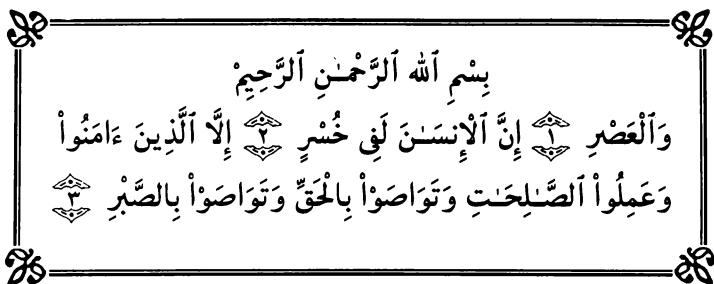 بِسْمِ ٱللهِ ٱلرَّحْمَـٰنِ ٱلرَّحِيمْ
وَٱلْعَصْرِ ١ إِنَّ ٱلْإِنسَـٰنَ لَفِى خُسْرٍ ٢ إِلَّا ٱلَّذِينَ ءَامَنُوا۟
وَعَمِلُوا۟ ٱلصَّـٰلِحَـٰتِ وَتَوَاصَوْا۟ بِالْحَقِّ وَتَوَاصَوْا۟ بِالصَّبْرِ ٣